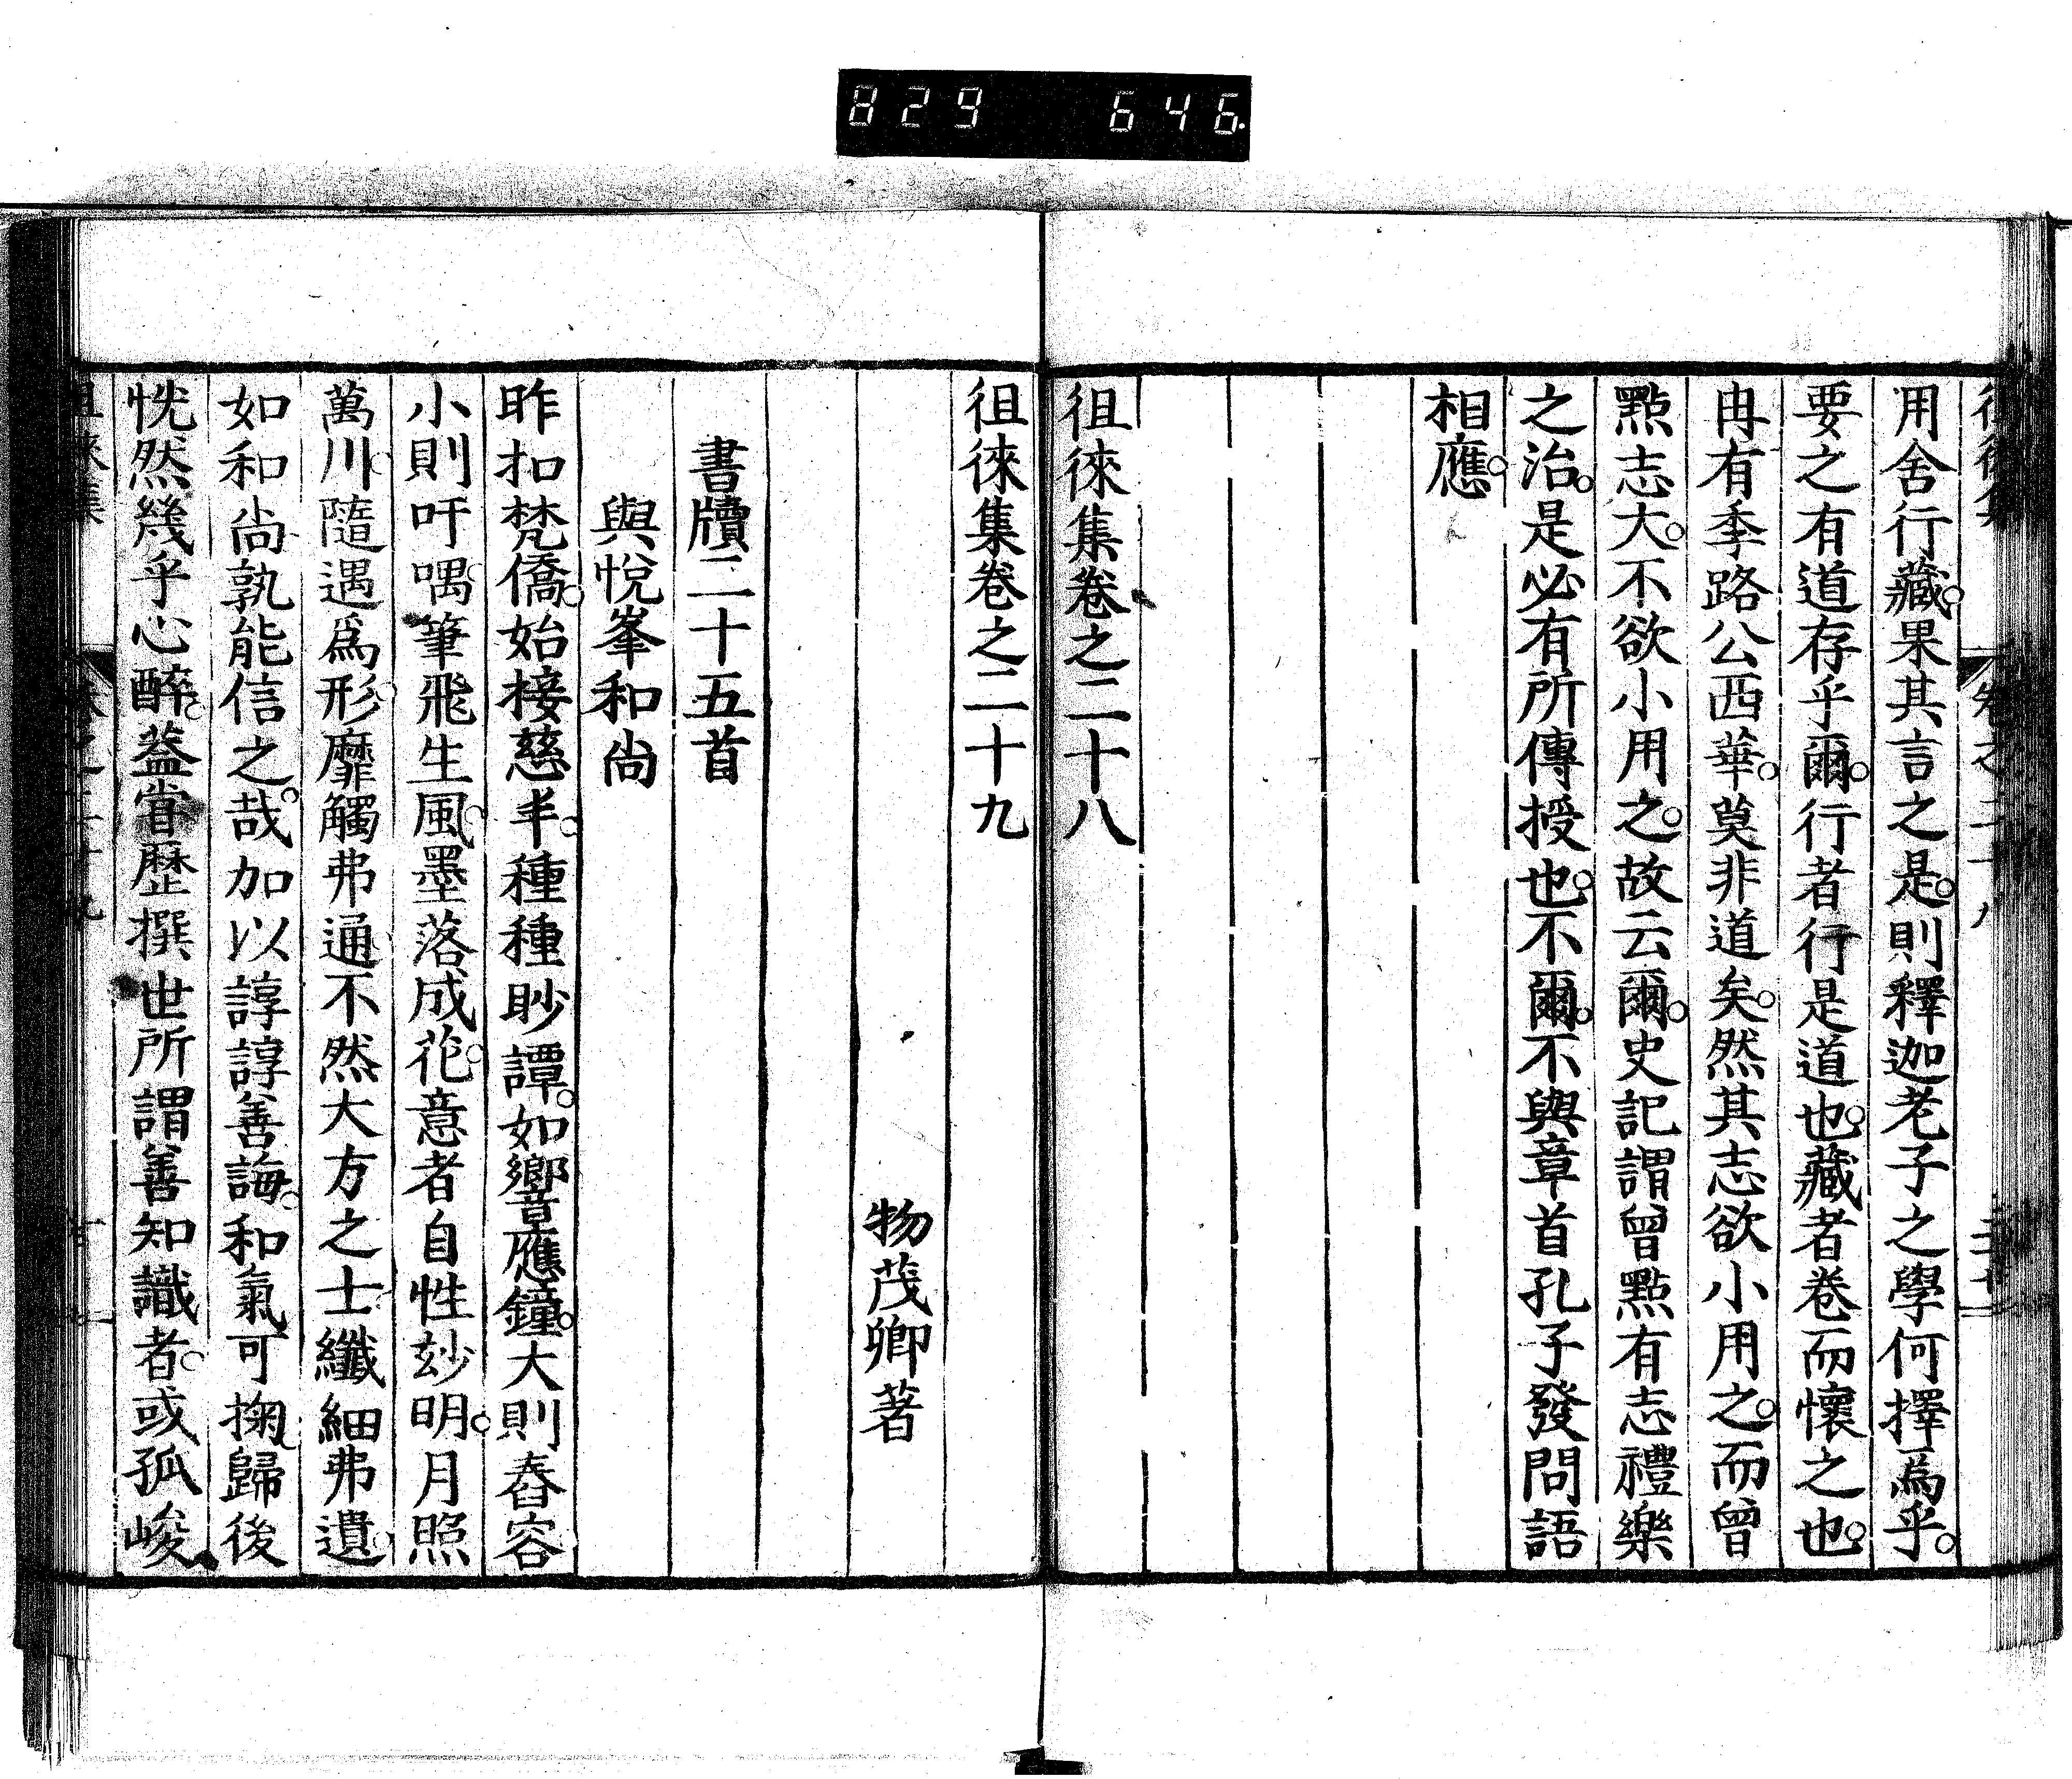 829 646
用舍行藏。果其言之是。則釋迦老子之學何擇爲乎。
要之有道存乎爾。行者行是道也。藏者卷而懷之也。
冉有季路公西華。莫非道矣。然其志欲小用之。而曾
點志大。不欲小用之。故云爾。史記謂曾點有志禮樂
之治。是必有所傳授也。不爾。不與章首孔子發問語
相應。
徂徠集卷之二十八
徂徠集卷之二十九
物茂卿著
書牘二十五首
與悅峯和尚
昨扣梵僑。始接慈半。種種眇譚。如響應鐘。大則舂容
小則吁喁。筆飛生風。墨落成花。意者自性玅明。月照
萬川。隨遇爲形。靡觸弗通。不然大方之士纖細弗遺。
如和尚孰能信之哉。加以諄諄善誨。和氣可掬。歸後
恍然幾乎心醉。葢甞歷撰世所謂善知識者。或孤峻